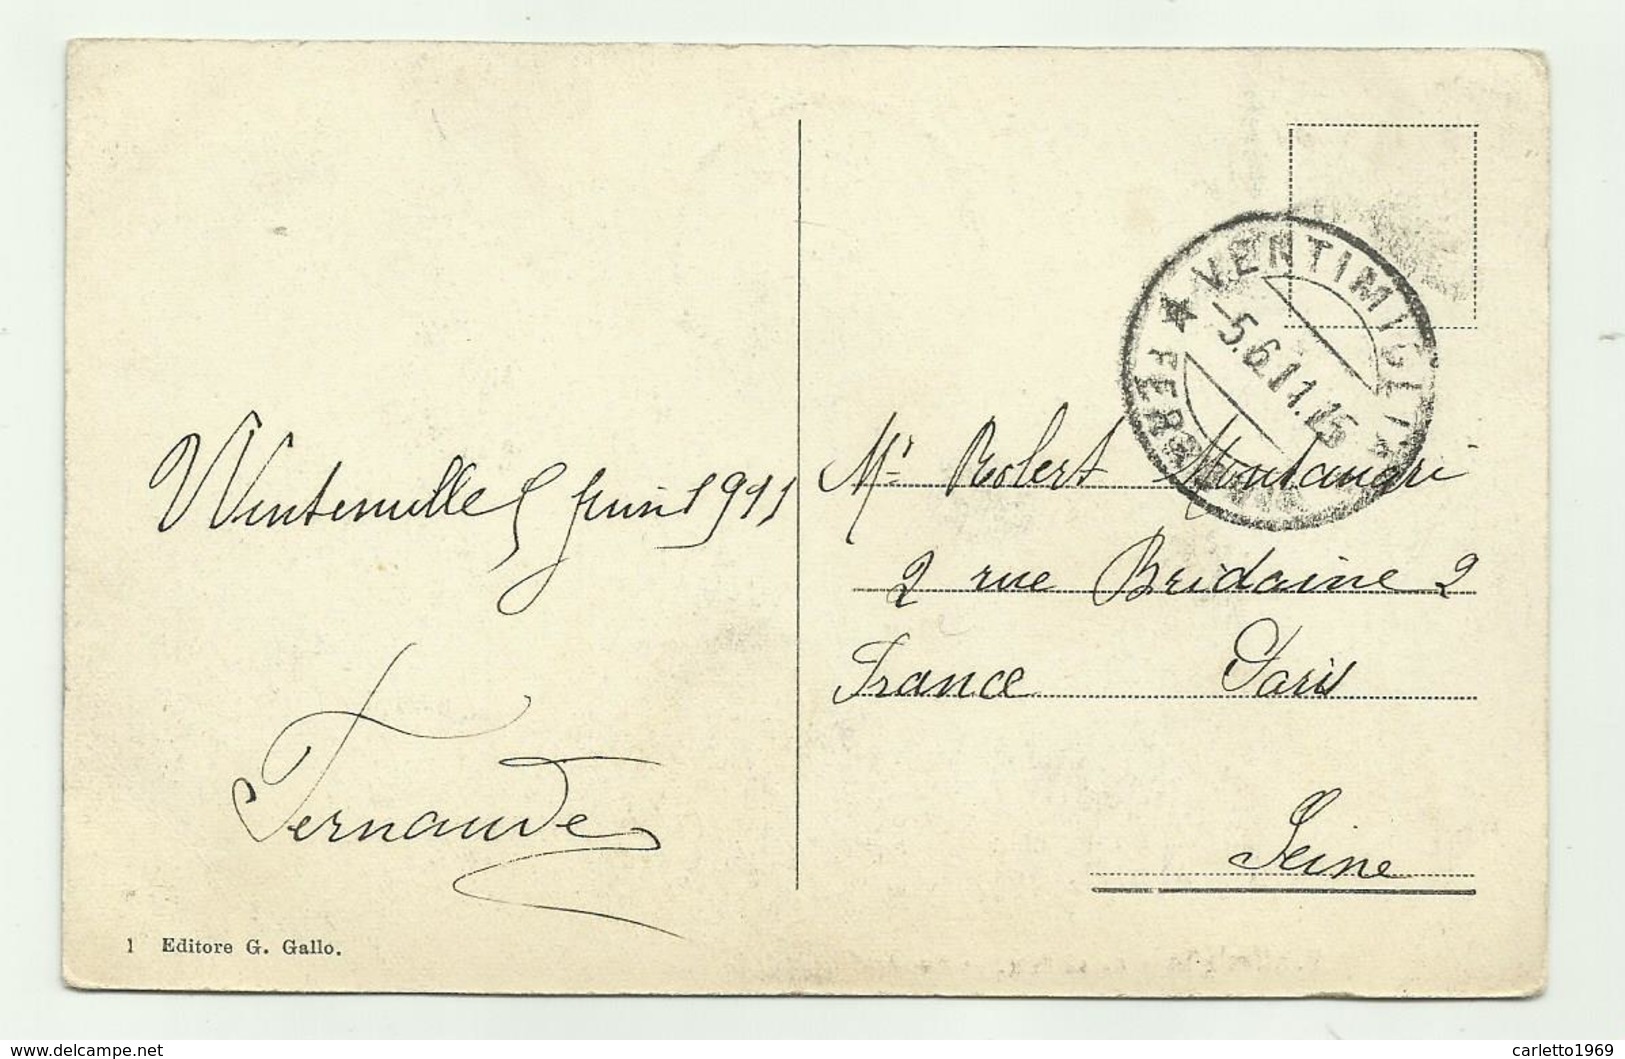 Wintemille 5 Juin 1911
Fernande
1 Editore G. Gallo.
VENTIMIGLIA
★ FERROVIA
-5.6.11.15
Mr Robert
2 rue Bridaine 2
France Paris
Seine
www.delcampe.net
carletto1969